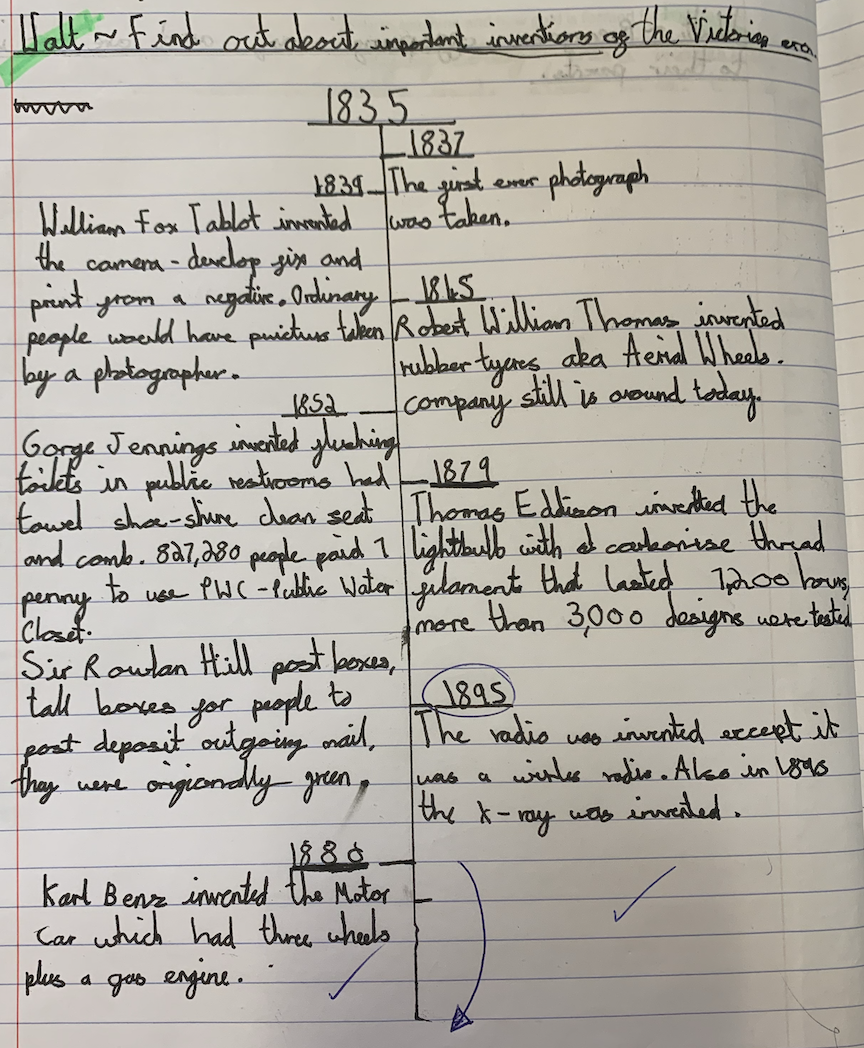 Walt ~ Find out about inportant inventions of the Victorian era.
1835
1837
The first ever photograph
was taken.
1839
William Fox Tablot invented
the camera - develop fix and
print from a negative. Ordinary
people would have puictius taken
by a photographer.
1845
Robert William Thomas invented
rubber tyeres aka Aerial Wheels.
company still is around today.
1852
Gorge Jennings invented flushing
toilets in public restrooms had
towel shoe-shine clean seat
and comb. 827,280 people paid 1
penny to use PWC - Public Water
Closet.
Sir Rowlan Hill post boxes,
tall boxes for people to
post deposit outgoing mail,
they were origionally green.
1879
Thomas Eddison invented the
lightbulb with a carbonise thread
filament that lasted 1,200 hours,
more than 3,000 designs were tested
1886
Karl Benz invented the Motor
Car which had three wheels
plus a gas engine.
1895
The radio was invented except it
was a wirles radio. Also in 1895
the X-ray was invented.